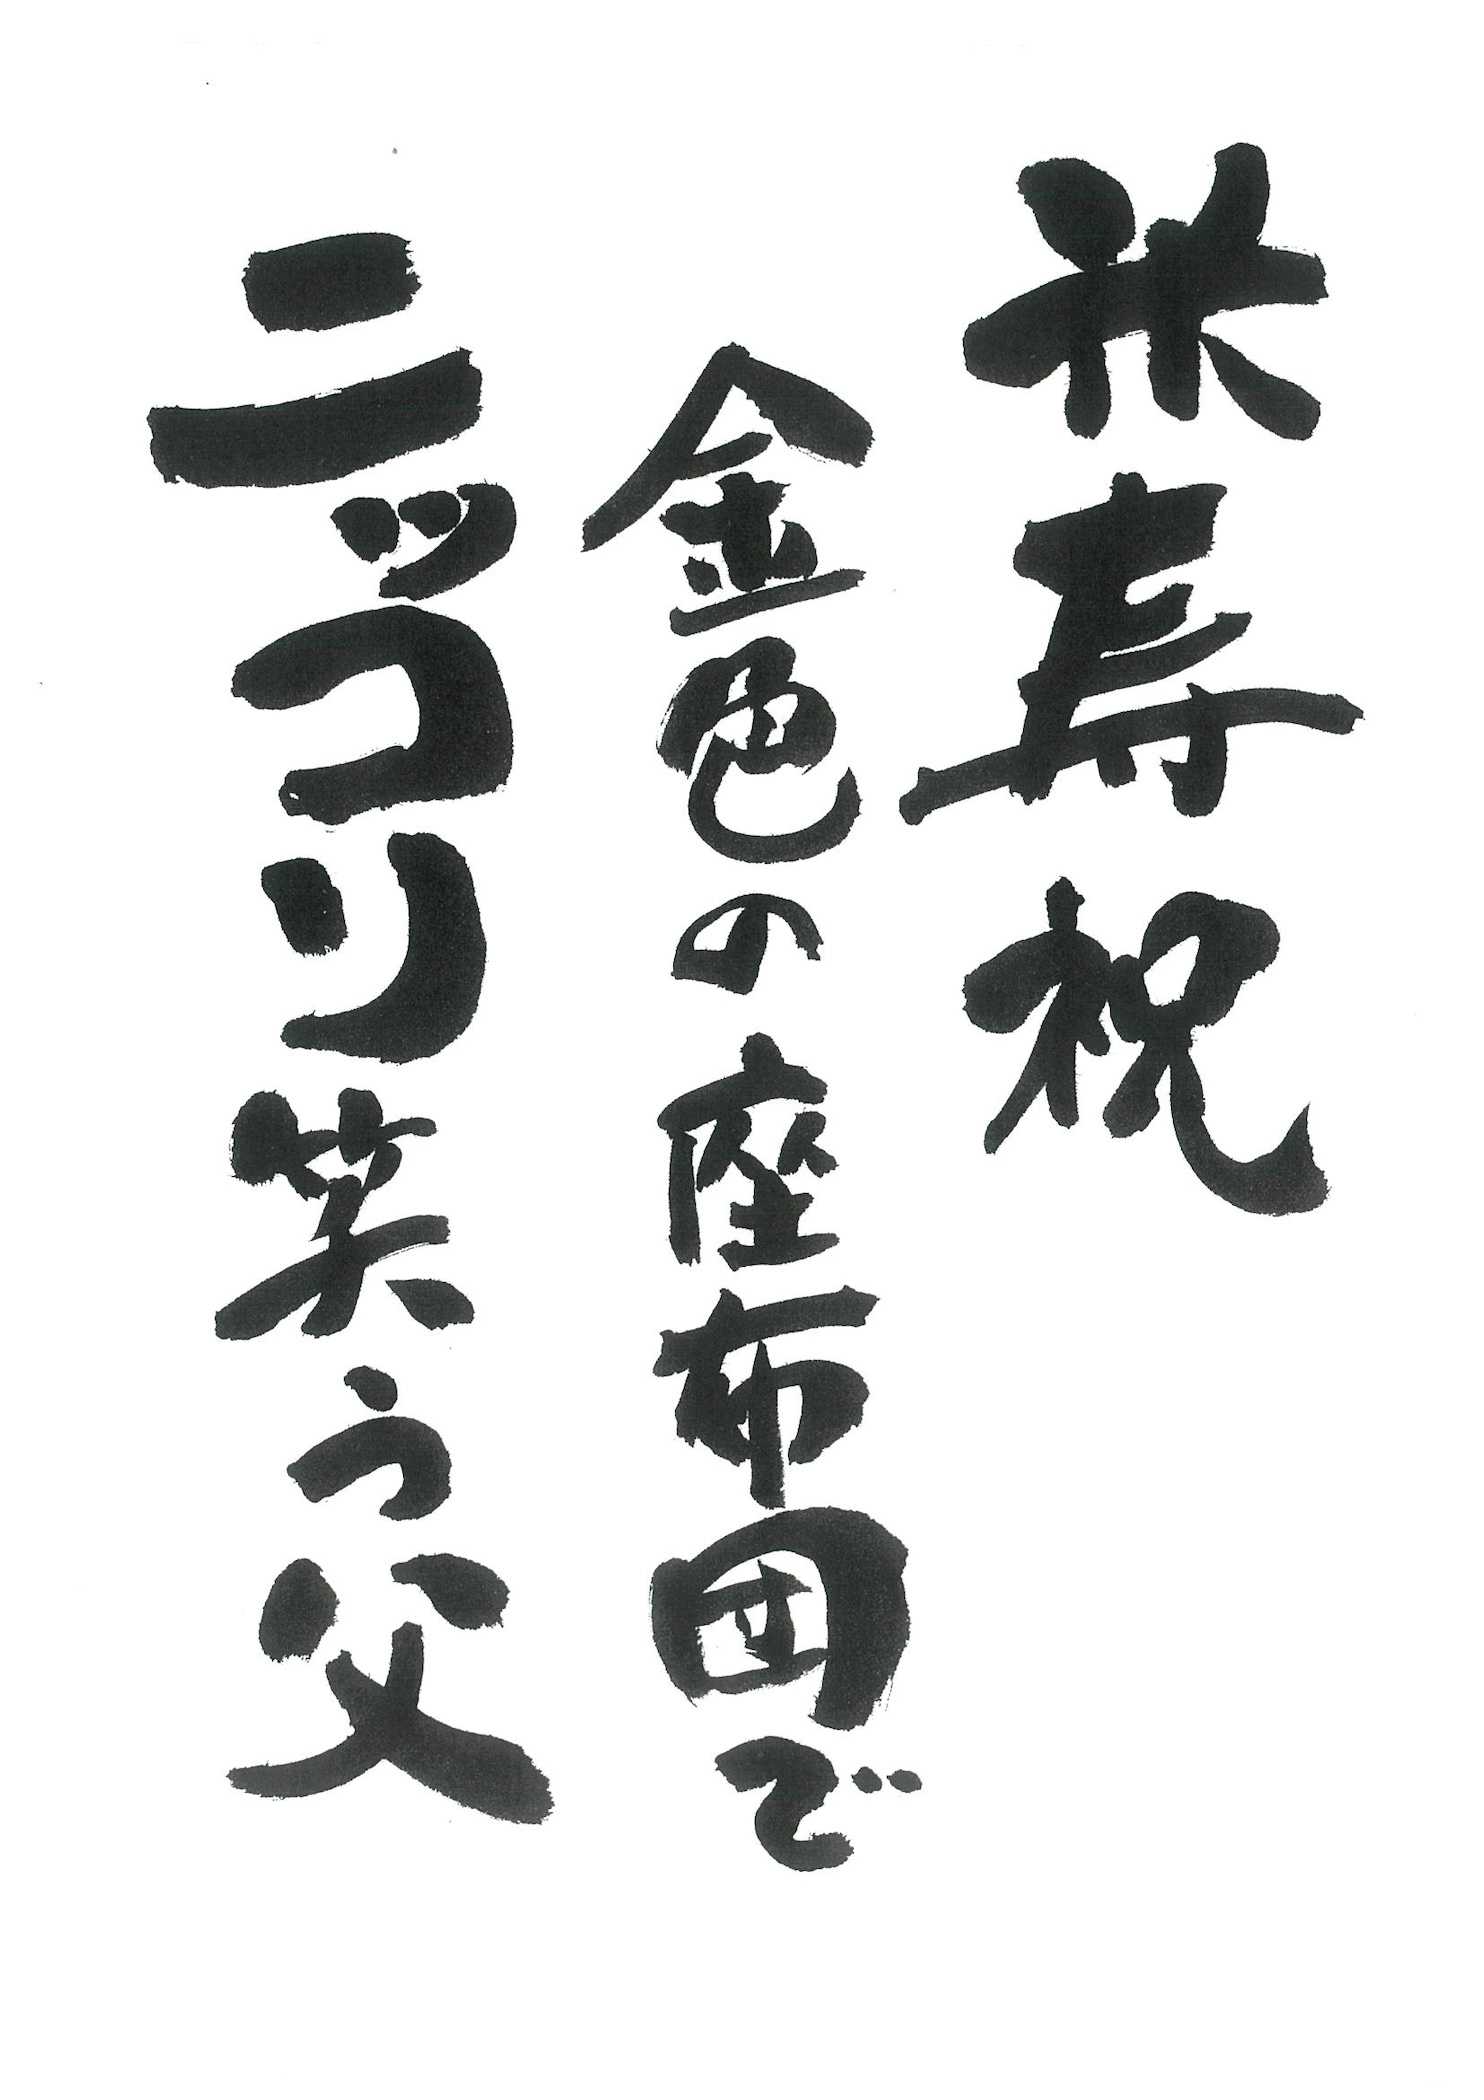 米寿祝
金色の座布団で
ニッコリ笑う父